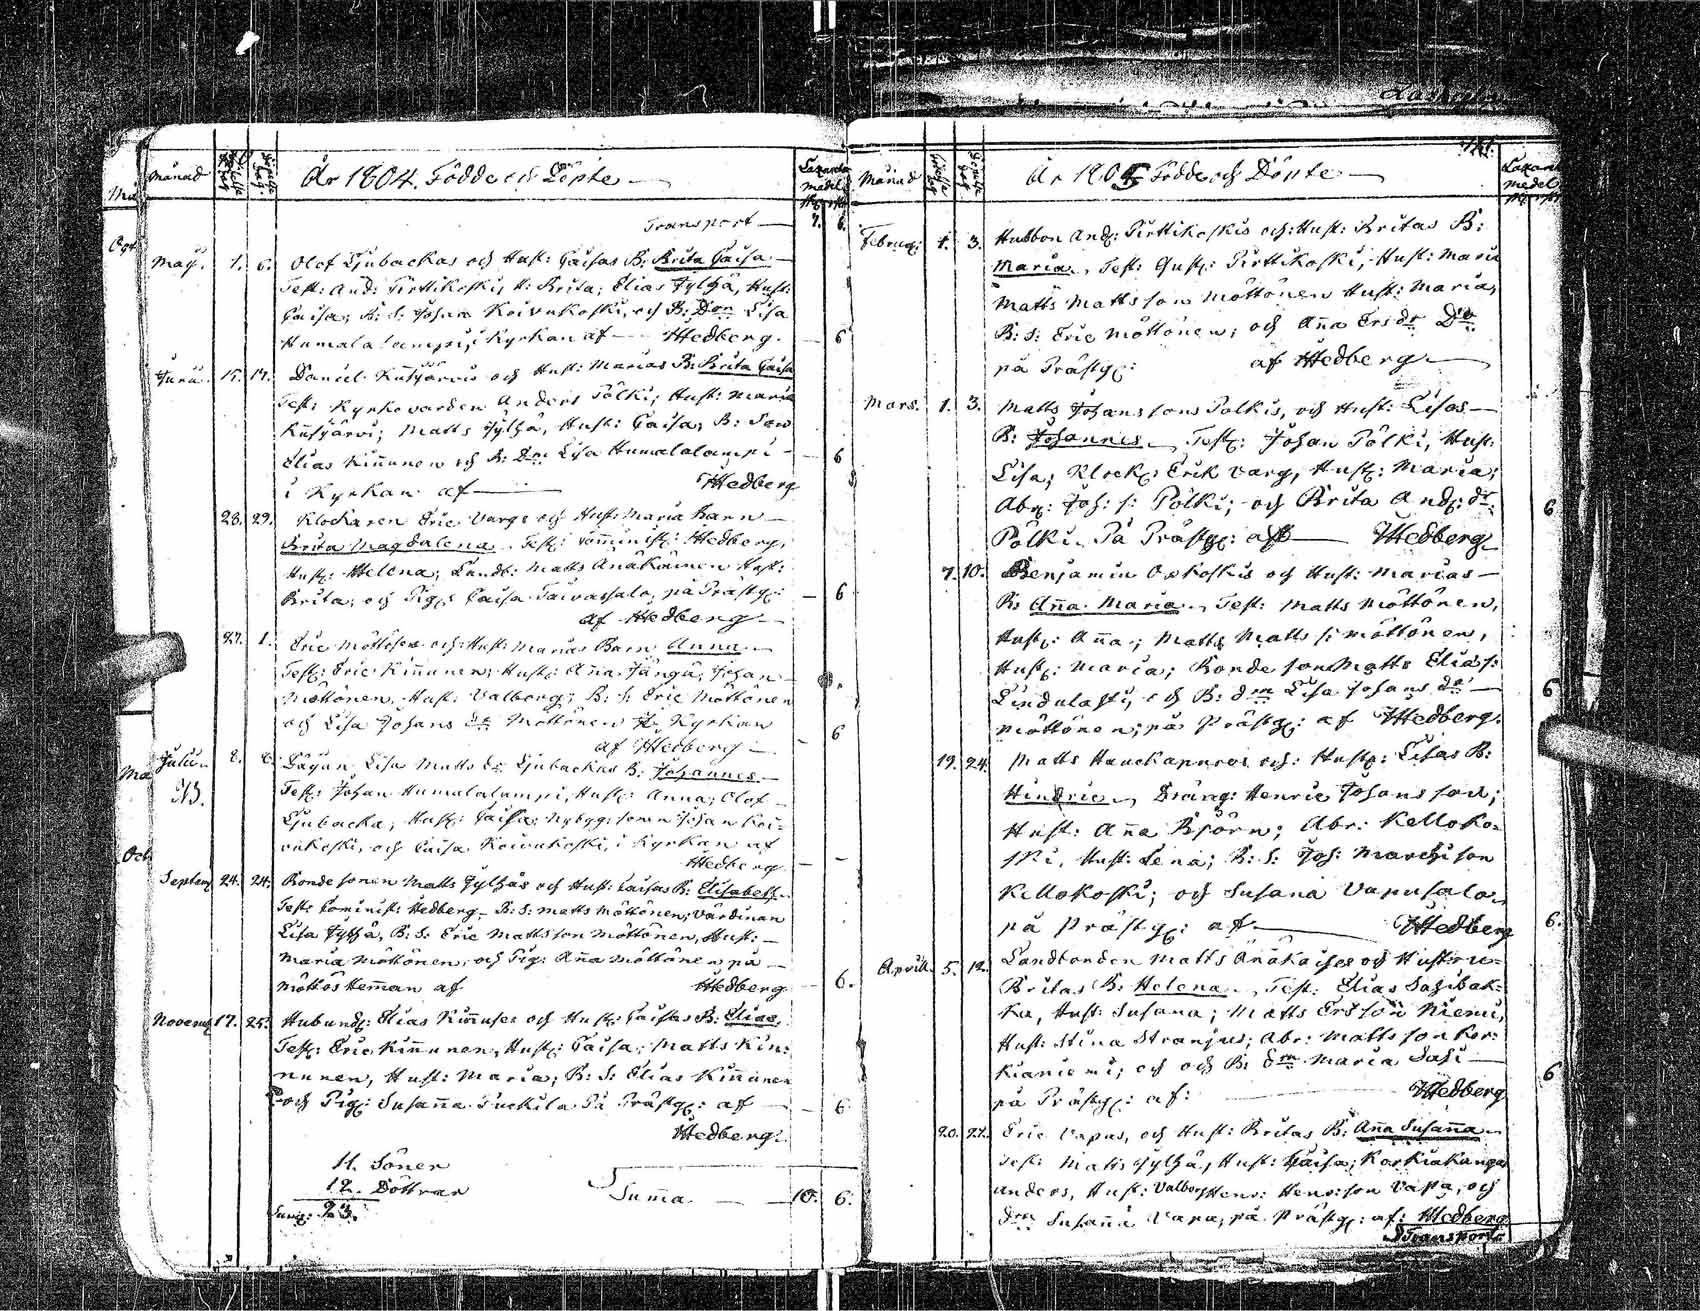 Månad
År 1804. Födde och Döpte
Lazaretts
medel
Transport — 7. 6.
Maij. 1. 6. Olof Ljubackas och Hust: Caisas B: Brita Caisa
Test: And: Pirttikoski, H: Brita; Elias Jylhä, Hust:
Caisa; B: S: Johan Koivukoski, och B: Don Lisa
Humalalampi, i Kyrkan af — Hedberg. — 6
Junii. 15. 17. Daniel och Hust: Marias B: Brita Caisa
Test: Kyrkovarden Anders Pölki; Hust: Maria
Matts Jylhä, Hust: Caisa; B: Son
Elias Kinnunen och B: Don Lisa Humalalampi — 6
i Kyrkan af — Hedberg
28. 29. Klockaren Eric Vargs och Hust: Maria Barn
Brita Magdalena Test: Comminist: Hedberg,
Hust: Helena; Landb: Matts Anäkäinen Hust:
Brita; och Pig: Caisa Taivassalo, på Prästg: — 6
af Hedberg
27. 1. Eric Möttöses och Hust: Marias Barn Anna
Test: Eric Kinnunen, Hust: Anna Johan
Möttönen, Hust: Valborg; B: S: Eric Möttönen
och Lisa Johans dr Möttönen Kyrkan — 6
af Hedberg
Julii 8. Pigan Lisa Matts dr Ljubackas B: Johannes
Test: Johan Humalalampi, Hust: Anna; Olof
Ljubacka, Hust: Caisa; Nybyg: sonen Johan Koi-
vukoski, och Caisa Koivukoski, i Kyrkan af
Hedberg — —
Septemb 24. 24. Bondesonen Matts Jylhäs och Hust: Caisas B: Elisabeth
Test: Cominist: Hedberg, B: S: Matts Möttönen; Värdinan
Lisa Jylhä, B: S: Eric Mattsson Möttönen, Hust:
Maria Möttönen, och Pig: Anna Möttönen på
Möttös Heman af Hedberg — 6.
Novemb 17. 25. Elias Kinnuses och Hust: Caisas B: Elias,
Test: Eric Kinnunen, Hust: Caisa; Matts Kin-
nunen, Hust: Maria; B: S: Elias Kinnunen
och Pig: Susanna Puckila På Prästg: af — 6
Hedberg
11. Söner
12. Döttrar Summa — 10. 6.
Sum: 23.
Månad
År 1805 Födde och Döpte
Lazaretts
medel
Februarj: 1. 3. And: Pirttikoskis och Hust: Britas B:
Maria, Test: Gust: Pirttikoski, Hust: Maria
Matts Mattsson Möttönen Hust: Maria,
B: S: Eric Möttönen; och Anna Ersdr Do
på Prästg: af Hedberg
Mars. 1. 3. Matts Johanssons Pölkis, och Hust: Lisas
B: Johannes, Test: Johan Pölki, Hust:
Lisa; Klock: Erik Varg, Hust: Maria;
Abr: Joh: s: Pölki; och Brita And: dr: 6
Pölki På Prästg: af — Hedberg
7. 10. Benjamin Oxkoskis och Hust: Marias
B: Anna Maria, Test: Matts Möttönen,
Hust: Anna; Matts Matts s: Möttönen,
Hust: Maria; Bonde son Matts Elias s:
Lindulahti, och B: dm Lisa Johans dr 6
Möttönen; på Prästg: af Hedberg.
19. 24. Matts Hauckapuros och Hust: Lisas B:
Hindric, Dräng: Henric Johansson;
Hust: Anna Björn; Abr: Kelloko-
ski, Hust: Lena; B: S: Joh:
Kellokoski; och Susana Vapusalo
på Prästg: af — Hedberg 6.
Aprill. 5. 12. Landbonden Matts Anäkaises och Hustru
Britas B: Helena, Test: Elias Sahibak-
ka, Hust: Susana; Matts Ersson Niemi,
Hust: Stina Stranjus; Abr: Mattsson Kor-
kianiemi; och och B: dm Maria Sahi 6
på Prästg: af: Hedberg
20. 22. Eric Vapus, och Hust: Britas B: Anna Susanna
Test: Matts Jylhä, Hust: Caisa; Korkiakangas
Anders, Hust: Valborg Henr: Henr: son Vapa, och
dm Susanna Vapa, på Prästg: af: Hedberg
Transport